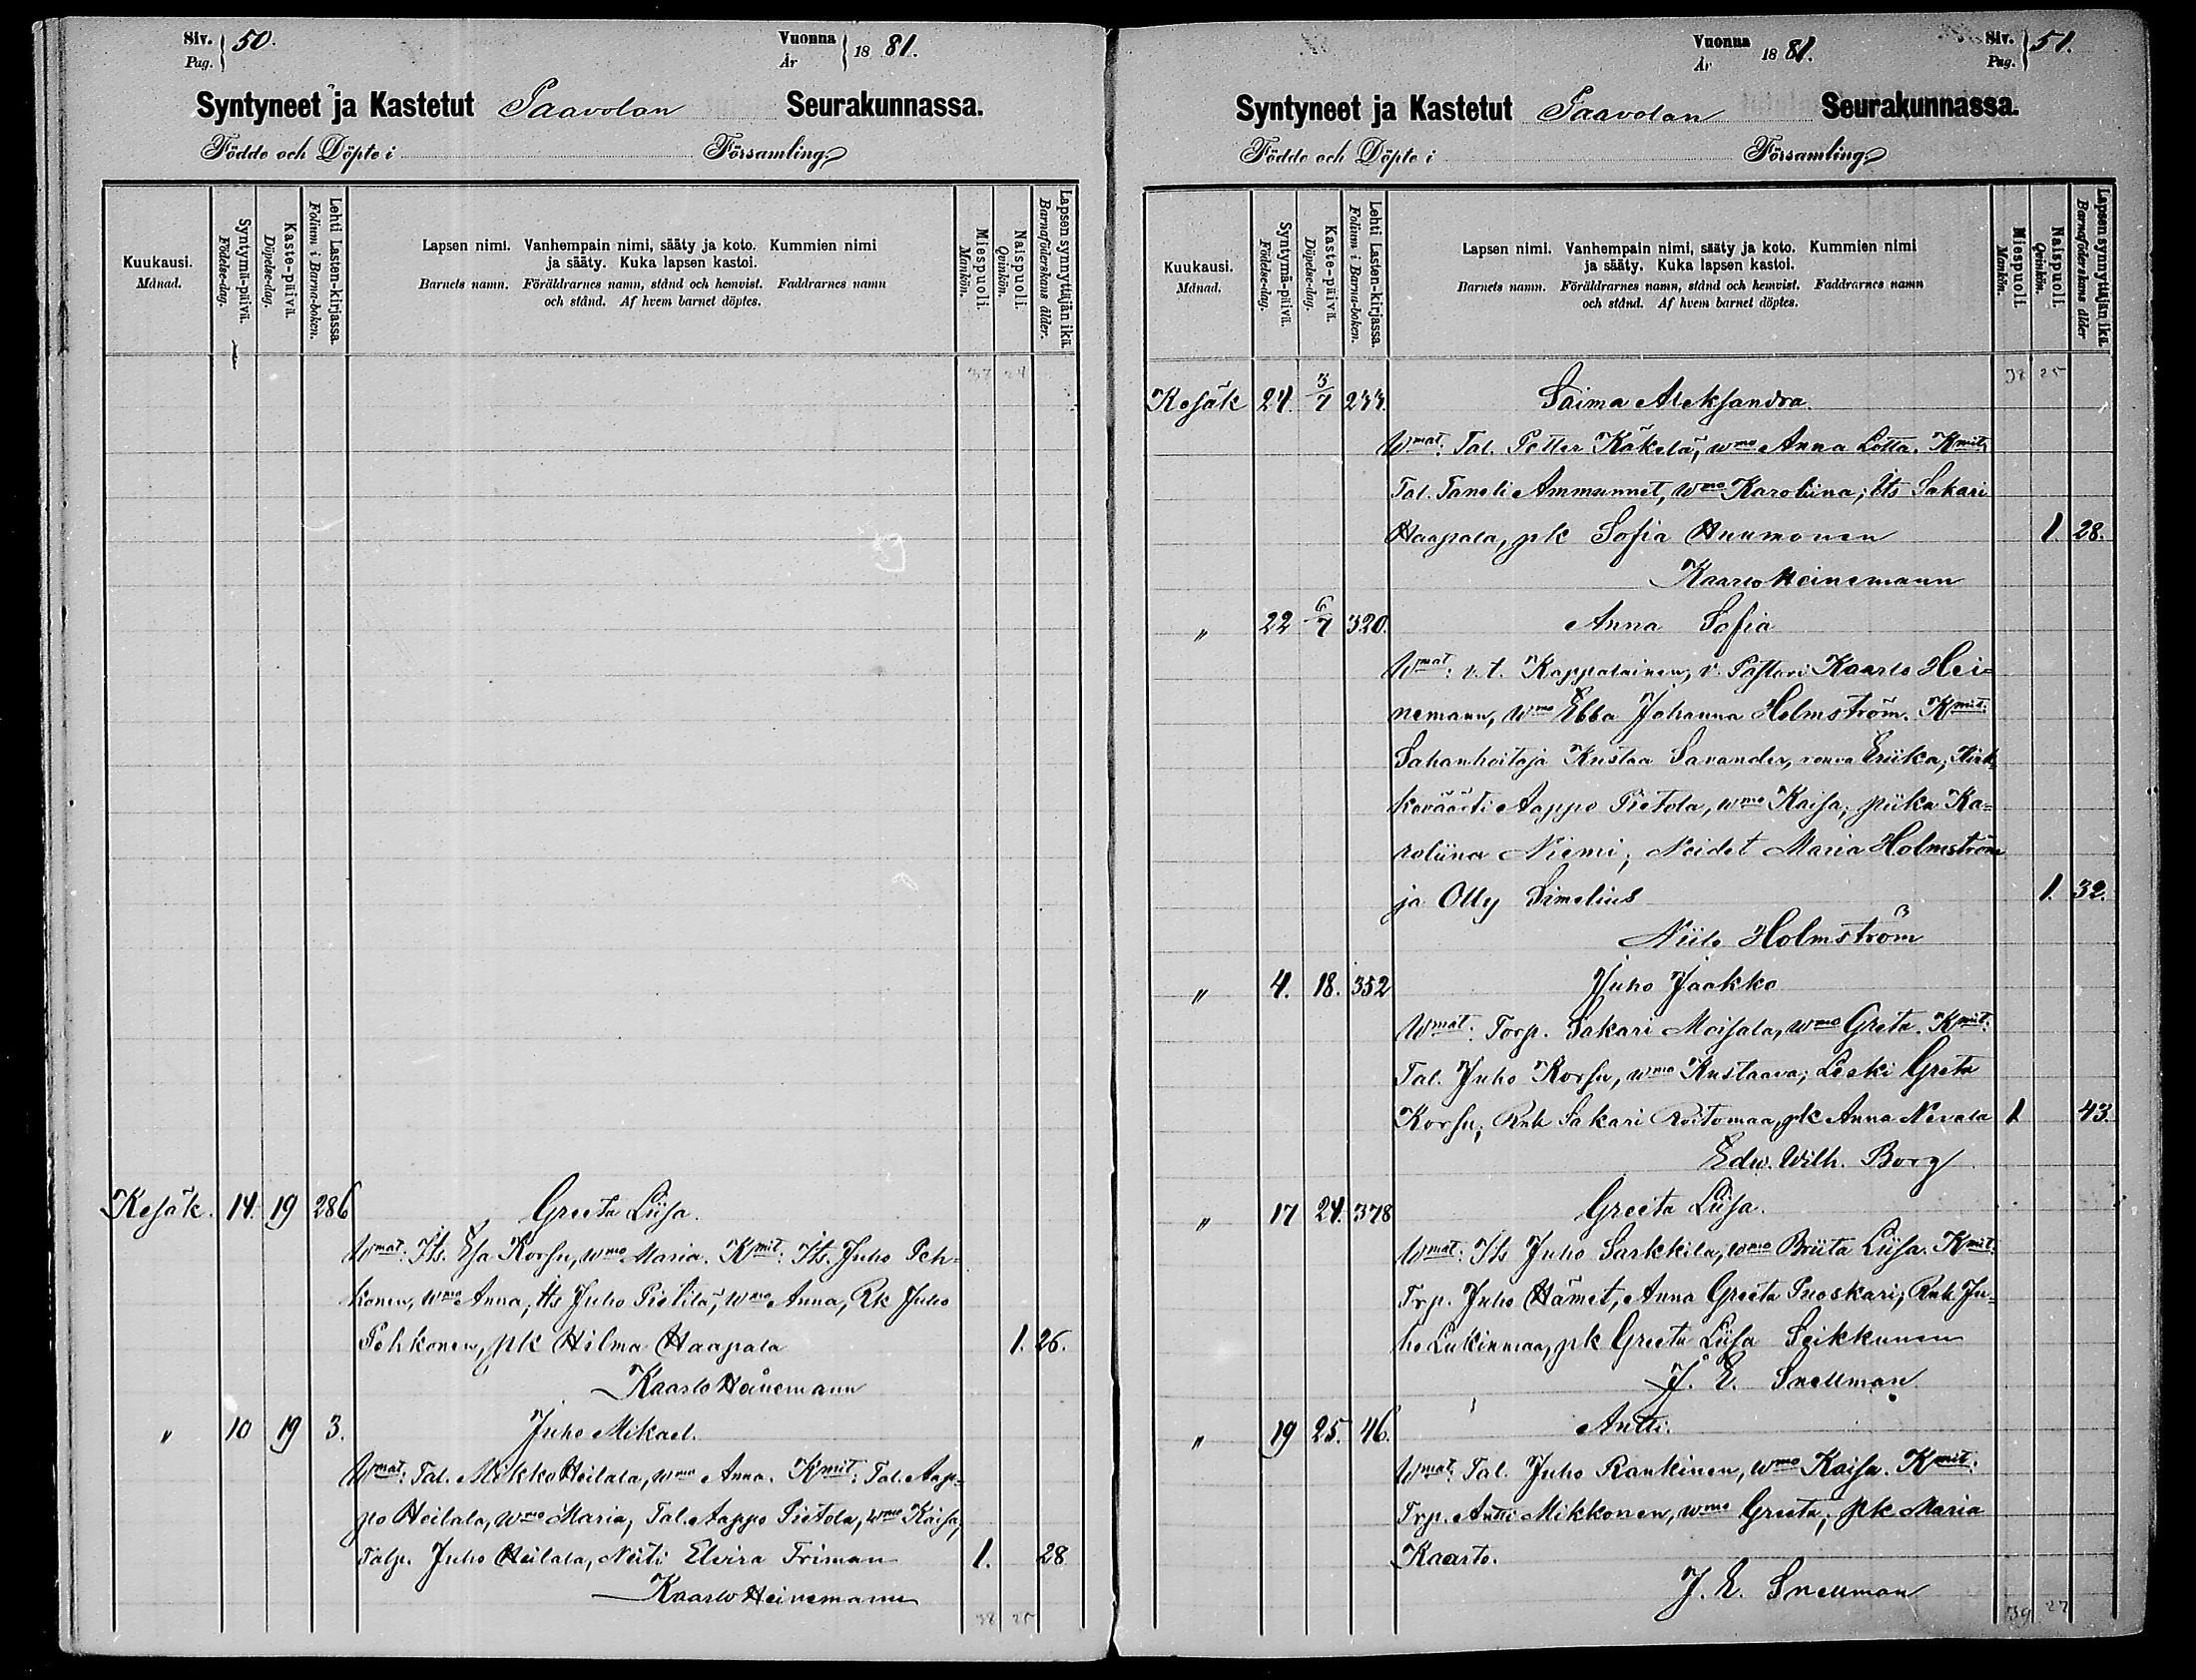 Siv. Pag. 50. Vuonna År 18 81.
Syntyneet ja Kastetut Paavolan Seurakunnassa.
Födde och Döpte i Församling
Kuukausi. Månad.
Syntymä-päivä. Födelse-dag.
Kaste-päivä. Döpelse-dag.
Lehti Lasten-kirjassa. Folium i Barna-boken.
Lapsen nimi. Vanhempain nimi, sääty ja koto. Kummien nimi
ja sääty. Kuka lapsen kastoi.
Barnets namn. Föräldrarnes namn, stånd och hemvist. Faddrarnes namn
och stånd. Af hvem barnet döptes.
Miespuoli. Mankön.
Naispuoli. Quinkön.
Lapsen synnyttäjän ikä. Barnaföderskans ålder.
37 24
Kesäk. 14. 19 286 Greeta Liisa.
Wmat: Its. Esa Korsu, wmo Maria. Kmit: Its. Juho Peh=
konen, wmo Anna, Its Juho Pietilä, wmo Anna, Rk Juho
Pehkonen, pk Hilma Haapala 1. 26.
Kaarlo Heinemann
" 10 19 3. Juho Mikael.
Wmat: Tal. Mikko Heilala, wmo Anna. Kmit: Tal. Aap=
po Heilala, wmo Maria, Tal. Aappo Pietola, wmo Kaisa,
Talp. Juho Heilala, Neiti Elvira Friman 1. 28
Kaarlo Heinemann
38 25
Vuonna År 18 81. Siv. Pag. 51.
Syntyneet ja Kastetut Paavolan Seurakunnassa.
Födde och Döpte i Församling
Kuukausi. Månad.
Syntymä-päivä. Födelse-dag.
Kaste-päivä. Döpelse-dag.
Lehti Lasten-kirjassa. Folium i Barna-boken.
Lapsen nimi. Vanhempain nimi, sääty ja koto. Kummien nimi
ja sääty. Kuka lapsen kastoi.
Barnets namn. Föräldrarnes namn, stånd och hemvist. Faddrarnes namn
och stånd. Af hvem barnet döptes.
Miespuoli. Mankön.
Naispuoli. Quinkön.
Lapsen synnyttäjän ikä. Barnaföderskans ålder
38 25
Kesäk 24. 3/7 244. Saima Aleksandra.
Wmat: Tal. Petter Käkelä, wmo Anna Lotta. Kmit:
Tal. Taneli Ammunnet, wmo Karoliina; Its Sakari
Haapala, pk Sofia Huumonen 1. 28.
Kaarlo Heinemann
" 22 6/7 320. Anna Sofia
Wmat: v. t. Kappalainen, v. Pastori Kaarlo Hei=
nemann, wmo Ebba Johanna Holmström. Kmit:
Sahanhoitaja Kustaa Savander, rouva Eriika, Kirk=
kovääti Aappo Pietola, wmo Kaisa; piika Ka=
roliina Niemi; Neidet Maria Holmström
ja Olly Simelius 1. 32.
Niilo Holmström
" 4. 18. 352 Juho Jaakko
Wmat: Torp. Sakari Moisala, wmo Greta. Kmit:
Tal. Juho Korsu, wmo Kustaava; Leski Greta
Korsu; Rnk Sakari Roitomaa, pk Anna Nevala 1 43.
Edw. Wilh. Borg
" 17 24. 378 Greeta Liisa.
Wmat: Its Juho Sarkkila, wmo Briita Liisa. Kmit:
Trp. Juho Hämet, Anna Greeta Suoskari; Rnk Ju=
ho Lukinmaa, pk Greeta Liisa Seikkunen
J. E. Snellman
" 19 25. 46. Antti.
Wmat: Tal. Juho Rankinen, wmo Kaisa. Kmit:
Trp. Antti Mikkonen, wmo Greeta; pk Maria
Kaarto.
J. E. Snellman
39 27